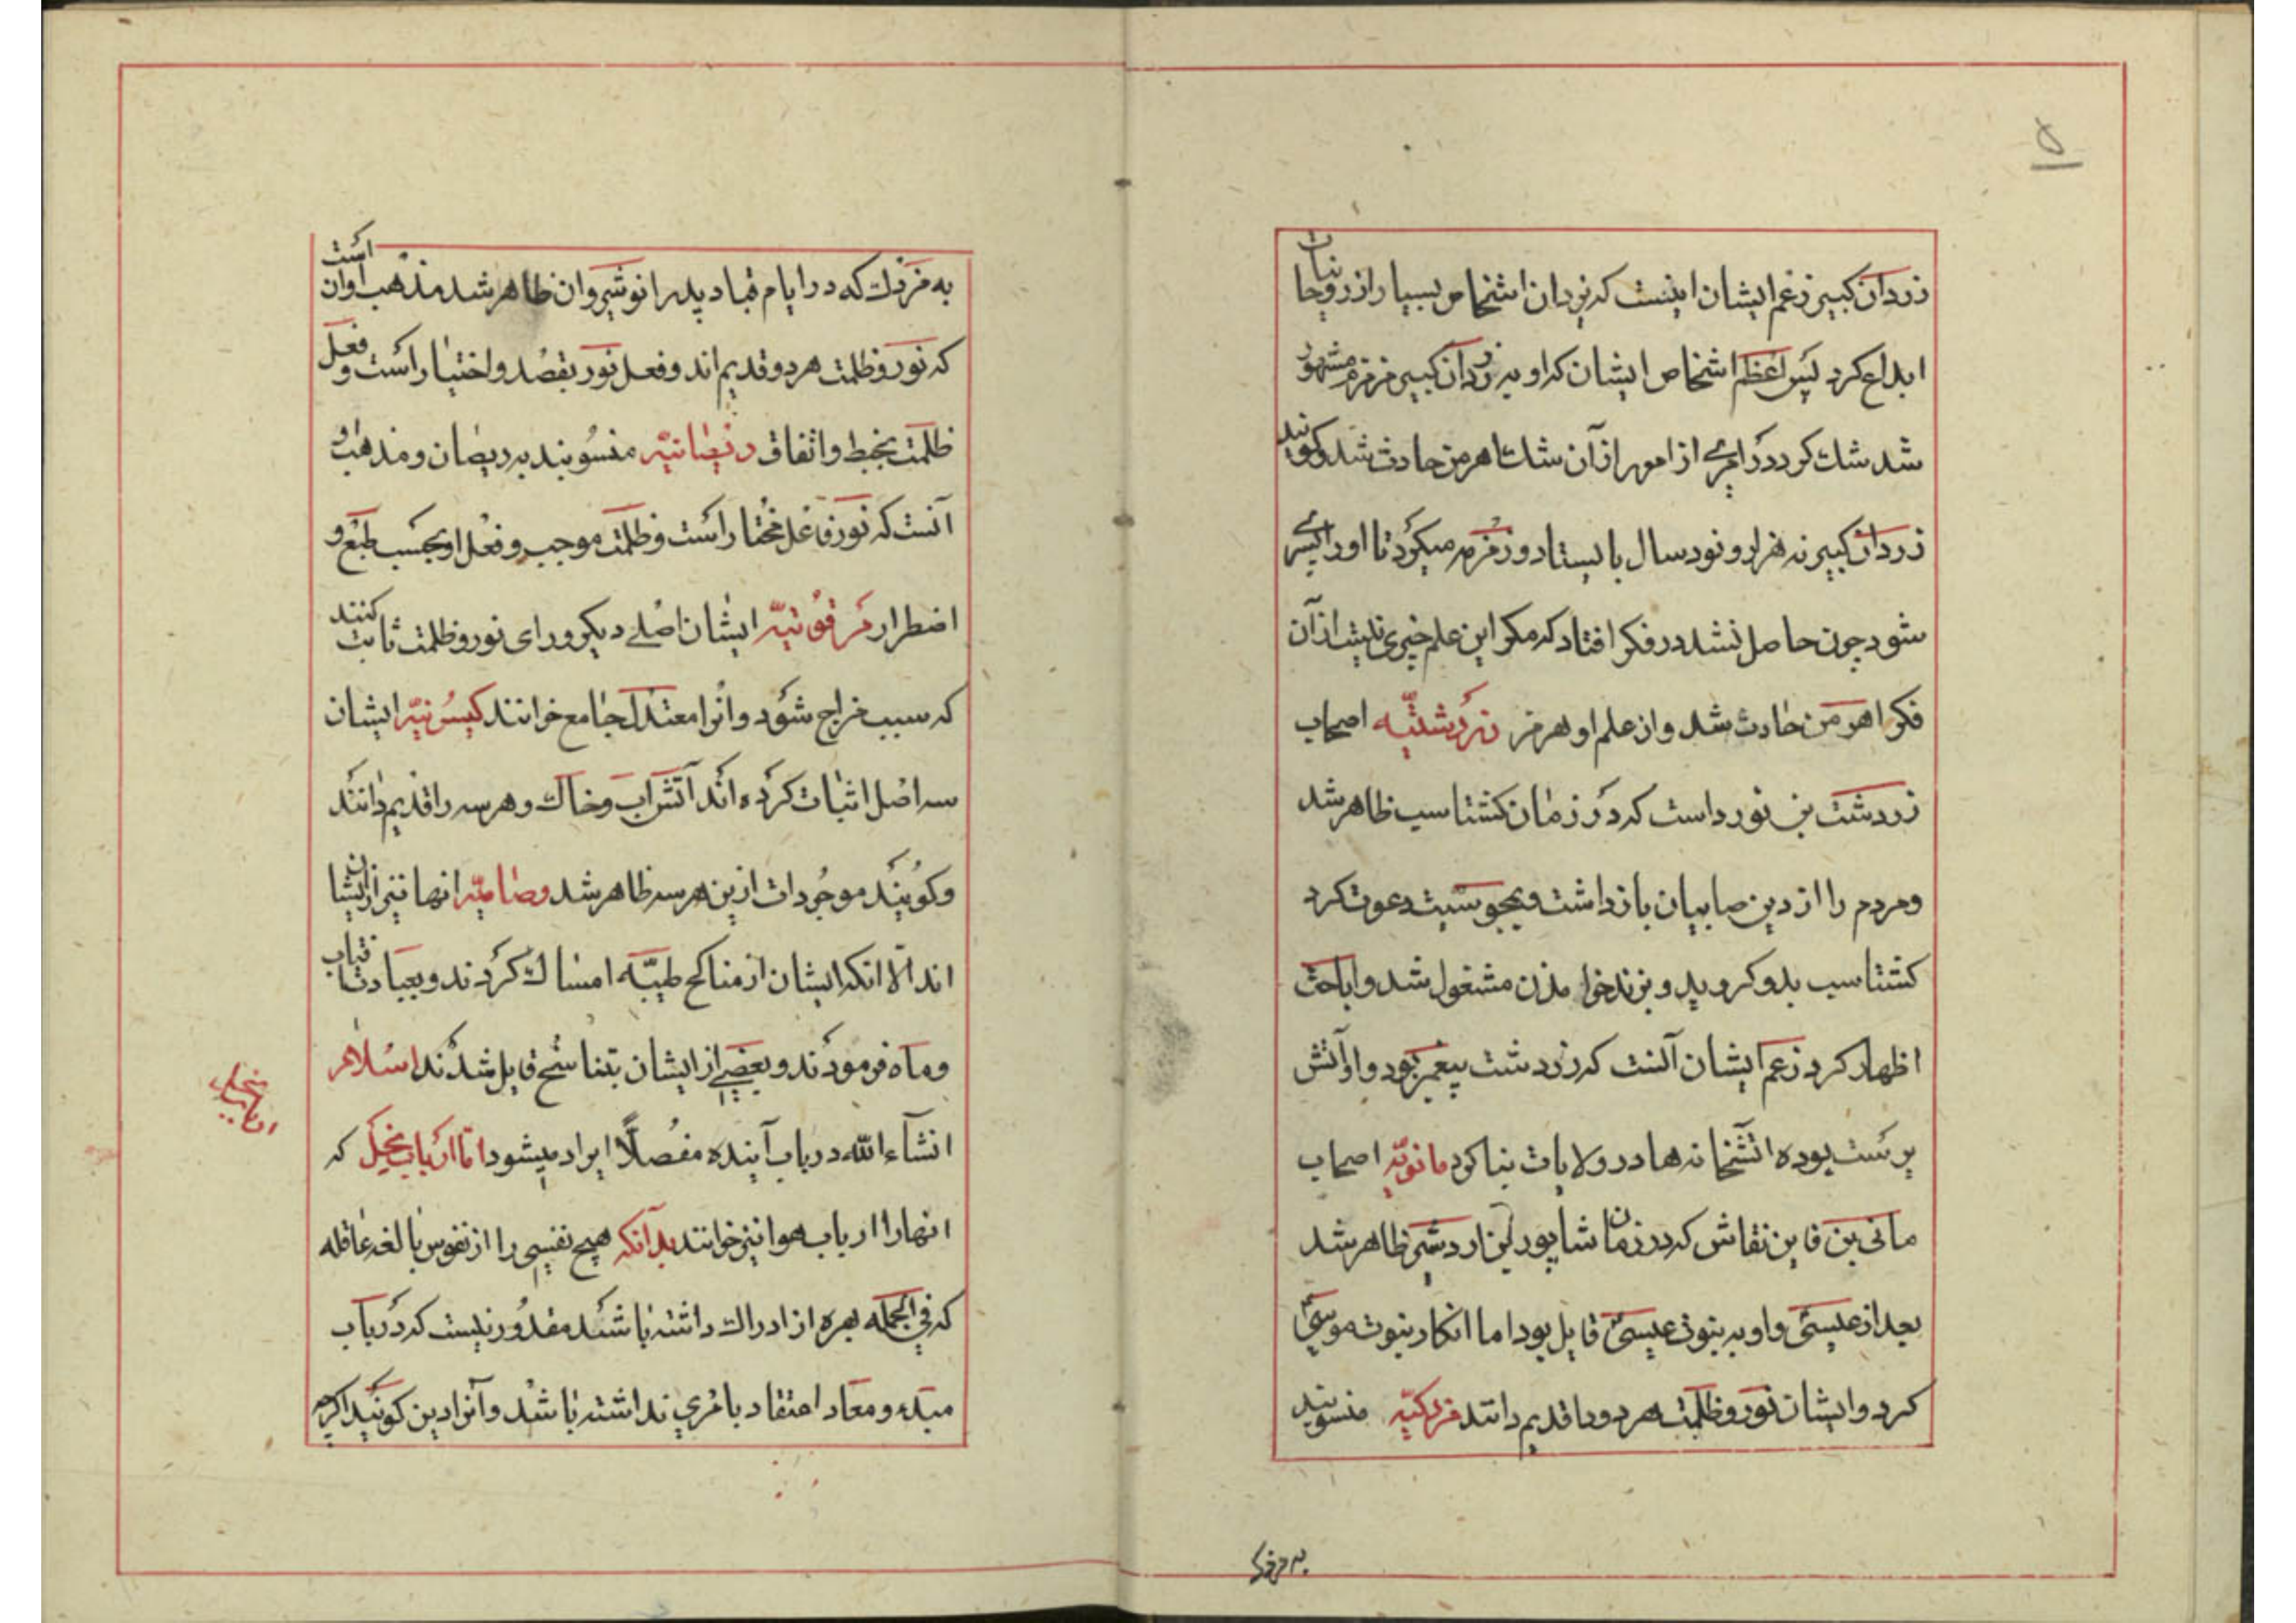 ۵
زردان کبیر زعم ایشان اینست که یزدان اشخاص بسیار از روحانیان
ابداع کرد پس اعظم اشخاص ایشان که او به زردان کبیر مشهور
شد شک کرد در امری از امور از آن شک اهرمن حادث شد و کویند
زردان کبیر نه هزار و نود سال بایستاد و زمزمه میکرد تا او را پسری
شود چون حاصل نشد در فکر افتاد که مکر این علم خیری نیست از آن
فکر اهرمن حادث شد و ازن علم او هرمز زردشتیه اصحاب
زردشت بن نورداست که در زمان کشتاسب ظاهر شد
و مردم را از دین صابیان بازداشت و بمجوسیت دعوت کرد
کشتاسب بدو کروید و بزند خواندن مشغول شد و اباحت
اظهار کرد زعم ایشان آنست که زردشت پیغمبر بود و او آتش
پرست بوده اتشخانه ها در ولایات بنا کرد مانویه اصحاب
مانی بن فاین نقاش که در زمان شاپور بن اردشیر ظاهر شد
بعد از عیسی و او به نبوت عیسی قایل بود اما انکار نبوت موسی
کرد و ایشان نور و ظلمت هر دو را قدیم دانند مزدکیه منسوبند
به مزدک
به مزدک که در ایام قباد پدر انوشیروان ظاهر شد مذهب او آن است
که نور و ظلمت هر دو قدیم اند و فعل نور بقصد و اختیار است و فعل
ظلمت بخبط و اتفاق دیصانیه منسوبند به دیصان و مذهب او
آنست که نور فاعل مختار است و ظلمت موجب و فعل او بحسب طبع و
اضطرار مرقونیه ایشان اصلی دیکر ورای نور و ظلمت ثابت کنند
که سبب مزاج شود و انرا معتدل جامع خوانند کیسونیه ایشان
سه اصل اثبات کرده اند آتش آب و خاک و هر سه را قدیم دانند
و کویند موجودات ازین هر سه ظاهر شد وصامیه انها نیز ازیشان
اند الا انکه ایشان از مناکح طیبه امساک کردند و بعبادت آفتاب
و ماه فرمودند و بعضی از ایشان بتناسخ قایل شدند اسلام
انشآء الله در باب آینده مفصلاً ایراد میشود اما ارباب نحل که
انها را ارباب هوا نیز خوانند بدآنکه هیچ نفسی را از نفوس بالغه عاقله
که فی الجمله بهره از ادراک داشته باشد مقدور نیست که در باب
مبدء و معاد اعتقاد بامری نداشته باشد و آنرا دین کویند اکرچه
ارباب نحل